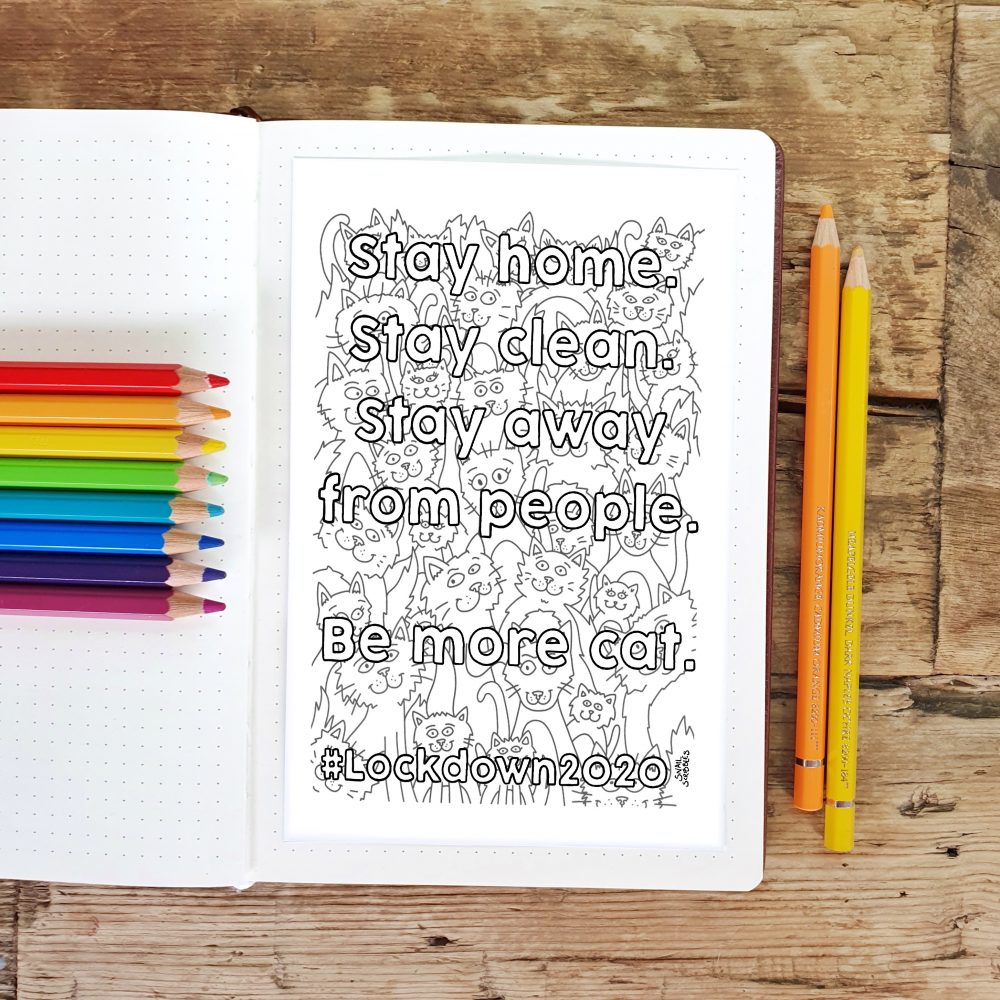 Stay home.
Stay clean.
Stay away
from people.
Be more cat.
#Lockdown2020